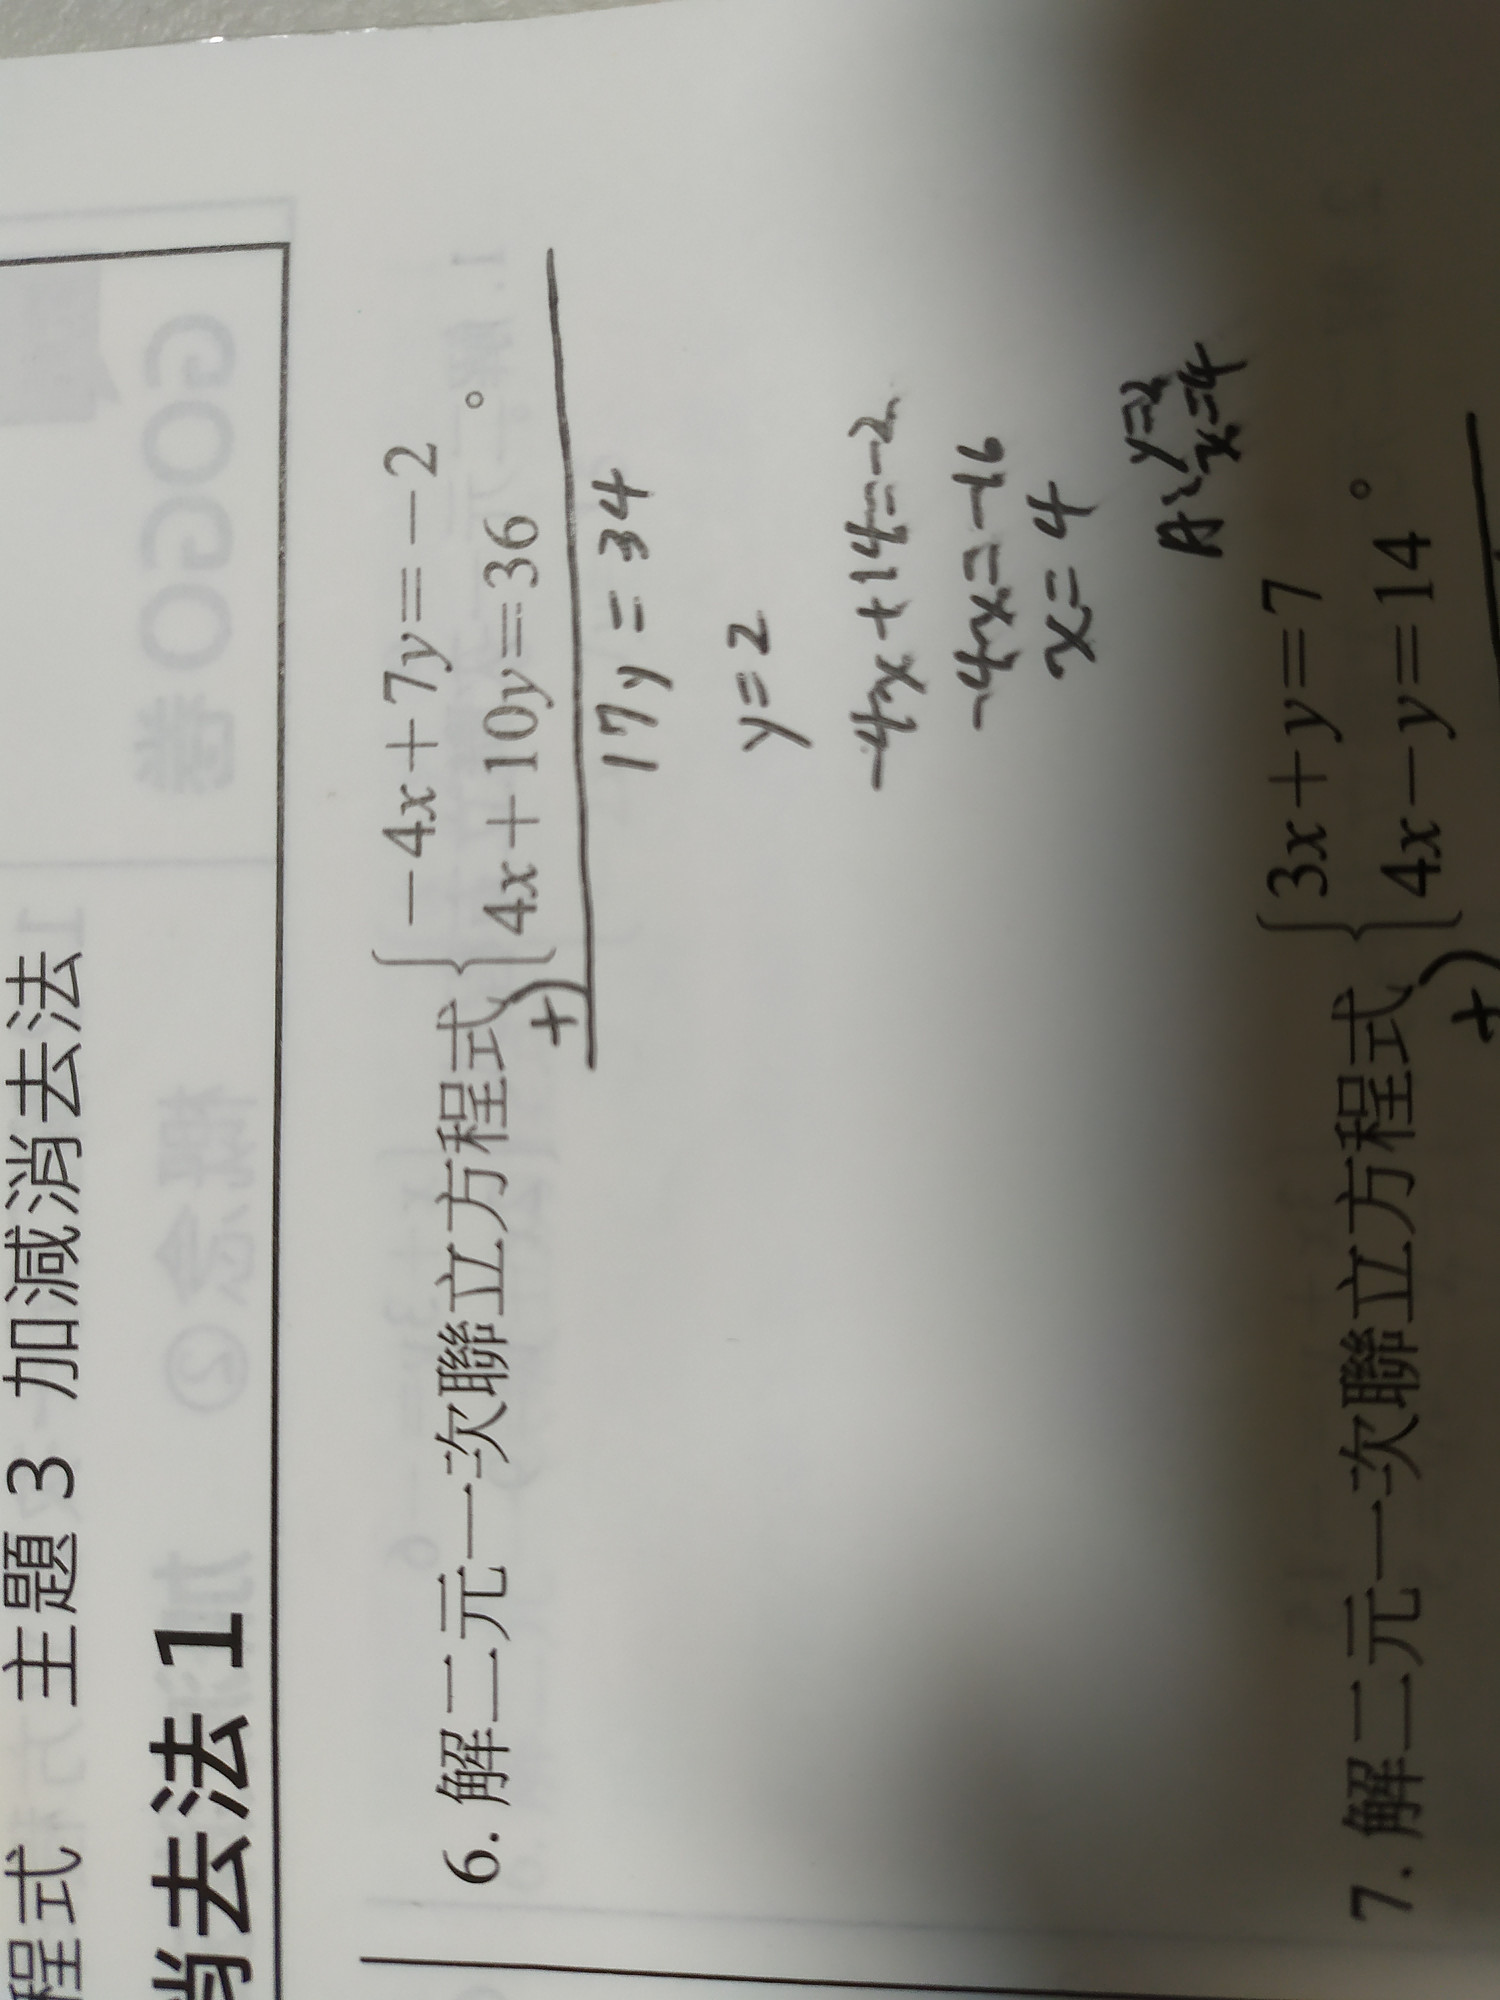 程式 主題 3 加減消去法
消去法 1
6. 解二元一次聯立方程式 { -4x+7y=-2
4x+10y=36 。
+)
17y=34
y=2
-4x+14=-2
-4x=-16
x=4
A: y=2
x=4
7. 解二元一次聯立方程式 { 3x+y=7
4x-y=14 。
+)